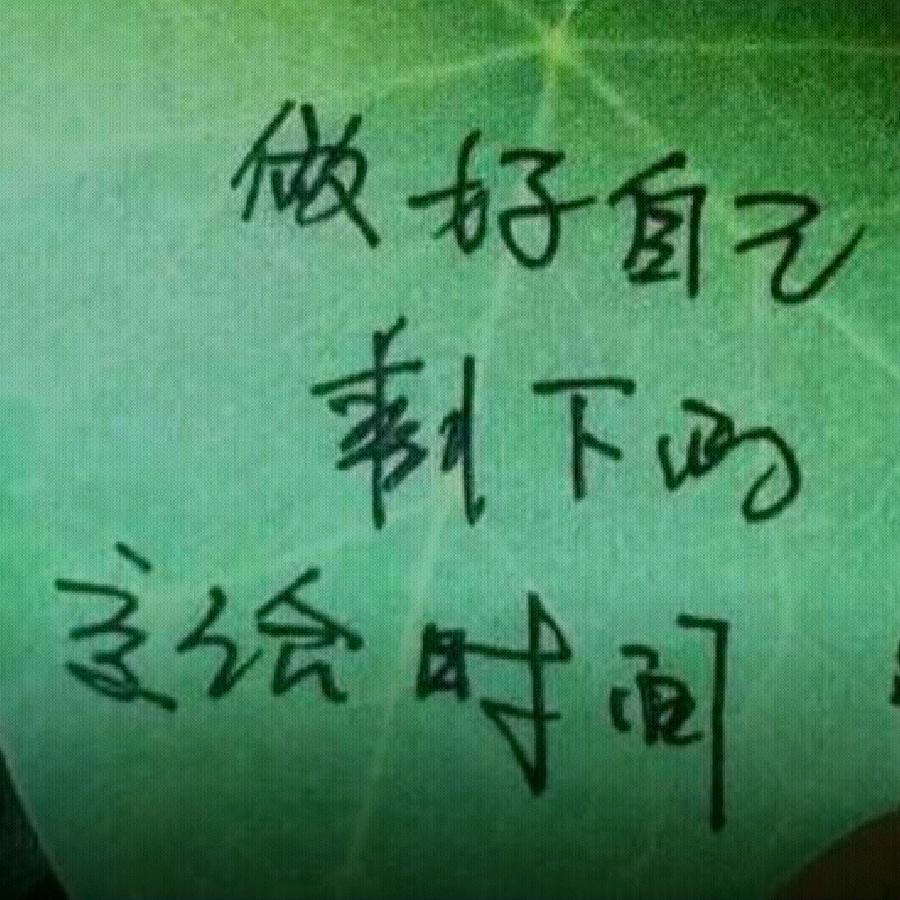 做好自己
剩下的
交给时间